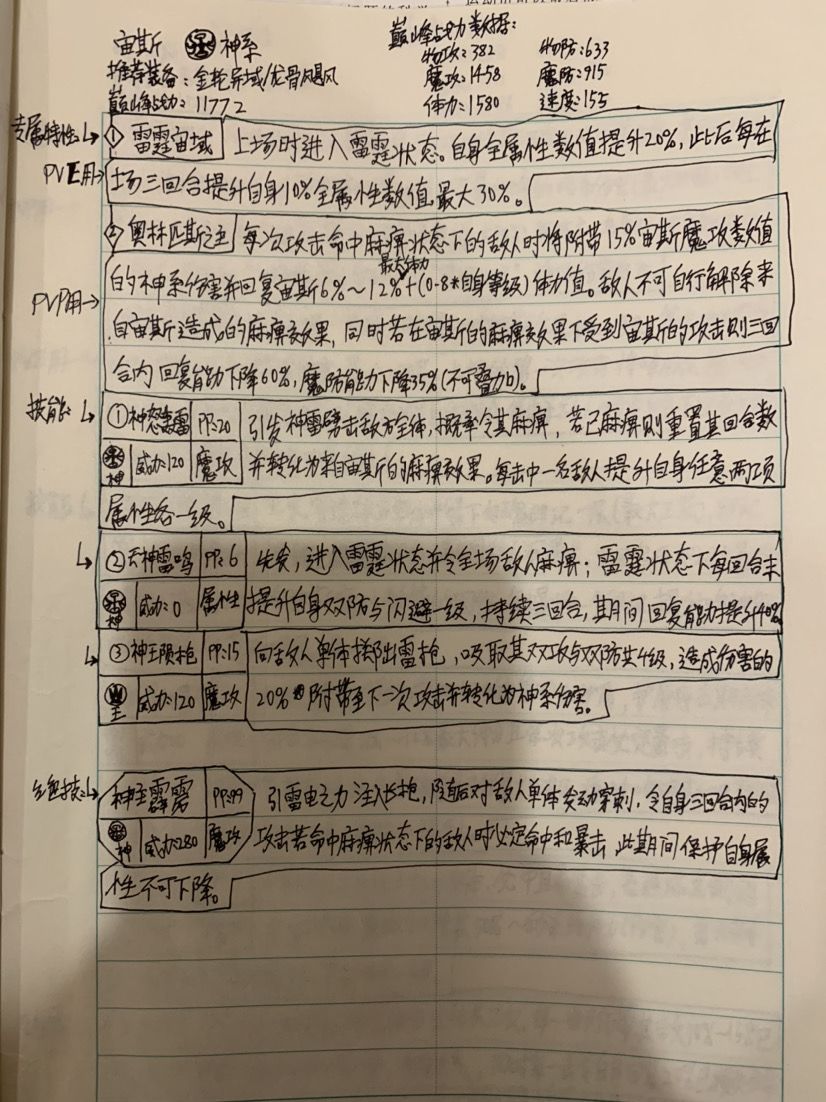 宙斯 神 神系
推荐装备：金轮异域/龙骨飓风
巅峰战力：11772
巅峰战力数据：
物攻：382 物防：633
魔攻：1458 魔防：915
体力：1580 速度：155
专属特性
① 雷霆宙域 上场时进入雷霆状态。自身全属性数值提升20%，此后每在
PVE用
场三回合提升自身10%全属性数值，最大30%。
② 奥林匹斯之主 每次攻击命中麻痹状态下的敌人时将附带15%宙斯魔攻数值
最大体力
的神系伤害并回复宙斯6%～12%+(0-8*自身等级)体力值。敌人不可自行解除来
PVP用
自宙斯造成的麻痹效果，同时若在宙斯的麻痹效果下受到宙斯的攻击则三回
合内回复能力下降60%，魔防能力下降35%(不可叠加)。
技能：
①神怒轰雷 PP：20 引发神雷劈击敌方全体，概率令其麻痹，若已麻痹则重置其回合数
神 威力：120 魔攻 并转化为来自宙斯的麻痹效果。每击中一名敌人提升自身任意两项
属性各一级。
②天神雷鸣 PP：6 先发，进入雷霆状态并令全场敌人麻痹；雷霆状态下每回合末
神 威力：0 属性 提升自身双防与闪避一级，持续三回合，其期间回复能力提升40%
③神王陨抢 PP：15 向敌人单体掷出雷抢，吸取其双攻与双防共4级，造成伤害的
王 威力：120 魔攻 20%附带至下一次攻击并转化为神系伤害。
神王霹雳 PP：99 引雷电之力注入长抢，随后对敌人单体发动穿刺，令自身三回合内的
神 威力：280 魔攻 攻击若命中麻痹状态下的敌人时必定命中和暴击，此期间保护自身属
性不可下降。